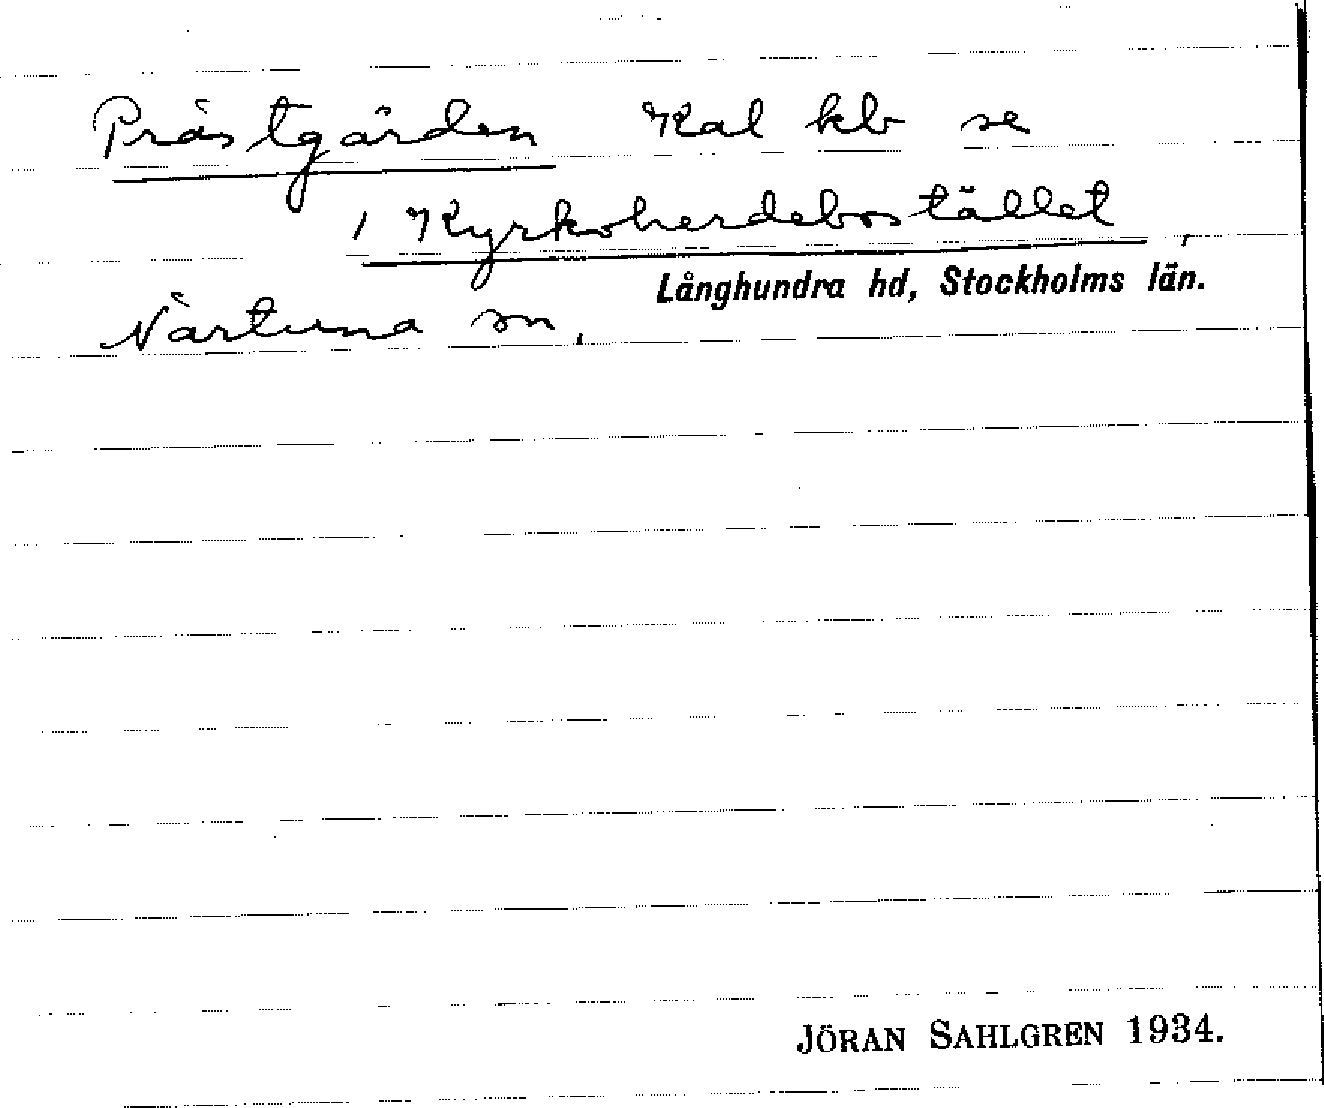 Prästgården Kal kb se
1 Kyrkoherdebostället,
Långhundra hd, Stockholms län.
Närtuna sn,
JÖRAN SAHLGREN 1934.